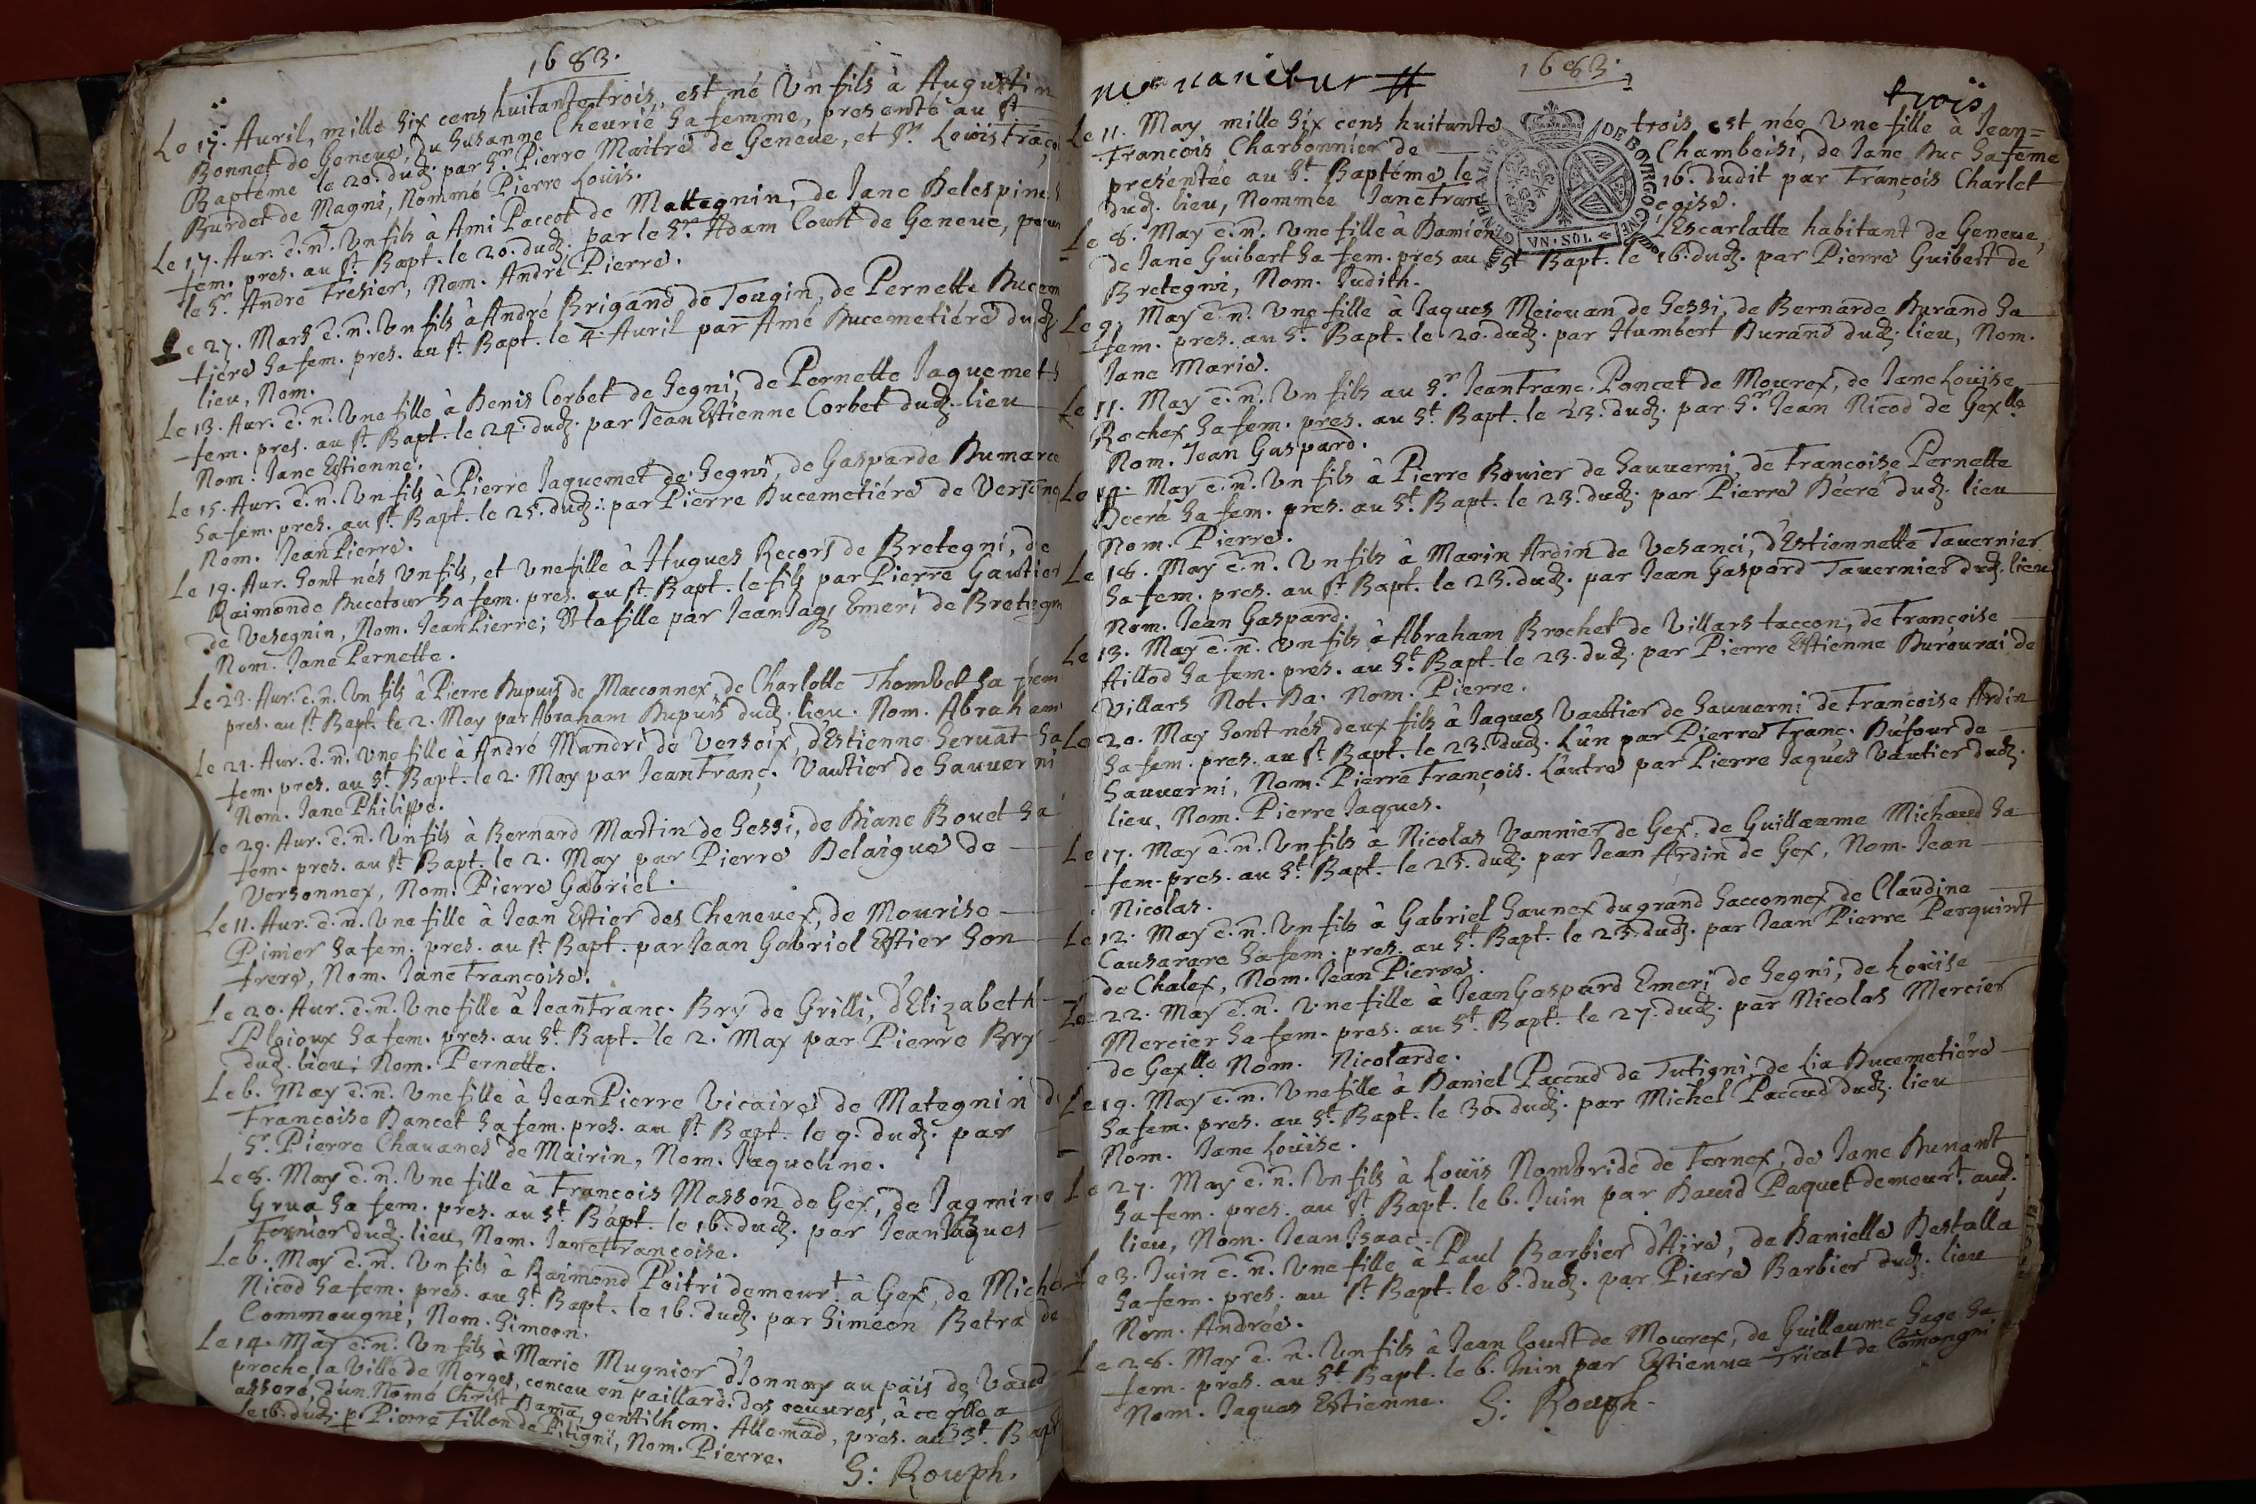 1683.
Le 17. Auril, mille Six cens huitante trois, est né Vn fils à Augustin
Bonnet de Geneue, du Susanne Cheurié Sa femme, presenté au st
Baptéme le 20. dud. par Sr. Pierre Maitre de Geneue, et Sr. Louis Franço
Burdet de Magni, Nommé Pierre Louis.
Le 17. Aur. e.n. Vn fils à Ami Paccot de Mattegnin, de Iane Delespine
fem. pres. au st. Bapt. le 20. dud. par le Sr. Adam Court de Geneue, pour
le Sr. André Tresier, Nom. André Pierre.
Le 27. Mars e.n. Vn fils à André Brigand de Tougin, de Pernette Ducem
tiére Sa fem. pres. au st. Bapt. le 4. Auril par Amé Ducemetiére dud.
lieu, Nom.
Le 13. Aur. e.n. Vne fille à Denis Corbet de Segni, de Pernette Iaquemet S
fem. pres. au st. Bapt. le 24. dud. par Iean Estienne Corbet dud. lieu
Nom. Iane Estienne.
Le 15. Aur. e.n. Vn fils à Pierre Iaquemet de Segni, de Gasparde Dumarce
Sa fem. pres. au st. Bapt. le 25. dud. par Pierre Ducemetiére de
Nom. Iean Pierre.
Le 19. Aur. Sont nés Vn fils, et Vne fille à Hugues Recors de Bretegni, de
Raimonde Ducetour Sa fem. pres. au st. Bapt. le fils par Pierre Gautier
de Vesegnin, Nom. Iean Pierre; Et la fille par Iean Iaq. Emeri de Bretegni
Nom. Iane Pernette.
Le 23. Aur. e.n. Vn fils à Pierre Dupuis de Macconnex, de Charlotte Thombet Sa fem
pres. au st. Bapt. le 2. May par Abraham Dupuis dud. lieu. Nom. Abraham
Le 21. Aur. e.n. Vne fille à André Mandri de Versoix, d'Estienne Seruat Sa
fem. pres. au St. Bapt. le 2. May par Iean Franç. Vautier de Sauuerni
Nom. Iane Philippe.
Le 29. Aur. e.n. Vn fils à Bernard Martin de Sessi, de Diane Bouet Sa
fem. pres. au st. Bapt. le 2. May par Pierre Delaigue de
Versonnex, Nom. Pierre Gabriel.
Le 11. Aur. e.n. Vne fille à Iean Estier des Cheneuex, de Mourise
Pinier Sa fem. pres. au st. Bapt. par Iean Gabriel Estier Son
frere, Nom. Iane Françoise.
Le 20. Aur. e.n. Vne fille à Iean Franc. Bry de Grilli, d'Elizabeth
Ploioux Sa fem. pres. au St. Bapt. le 2. May par Pierre Bry
dud. lieu; Nom. Pernette.
Le 6. May e.n. Vne fille à Iean Pierre Vicaire de Mategnin d
Françoise Dancet Sa fem. pres. au st. Bapt. le 9. dud. par
Sr. Pierre Chauanes de Mairin, Nom. Iaqueline.
Le 8. May e.n. Vne fille à François Masson de Gex, de Iaqmine
Grua Sa fem. pres. au St. Bapt. le 16. dud. par Iean Iaques
Fernier dud. lieu, Nom. Iane Françoise.
Le 6. May e.n. Vn fils à Raimond Poitri demeurt. à Gex, de Miche
Nicod Sa fem. pres. au St. Bapt. le 16. dud. par Simeon Betra de
Commougni, Nom. Simeon.
Le 14. May e.n. Vn fils à Marie Mugnier d'Ionnay au païs de Vaud
proche la Ville de Morges, conceu en paillard. des oeuures, à ce qlle a
asseré, d'un Nomé Christ Dama, gentilhom. Allemad, pres. au St. Bapt
le 16. dud. p. Pierre Fillon de Pitigni, Nom. Pierre.
S: Rouph.
1683.
trois
Le 11. May, mille Six cens huitante trois est née Vne fille à Iean=
François Charbonnier de Chambeisi, de Iane Duc Sa feme
presentée au St. Baptéme le 16. dudit par François Charlet
dud. lieu, Nommée Iane Françoise.
GENERALITE DE BOVRGOGNE
VN·SOL
Le 8. May e.n. Vne fille à Damien L'Escarlatte habitant de Geneue,
de Iane Guibert Sa fem. pres au St Bapt. le 16. dud. par Pierre Guibert de
Bretegni, Nom. Iudith.
Le 9. May e.n. Vne fille à Iaques Meieuan de Sessi, de Bernarde Durand Sa
fem. pres. au St. Bapt. le 20. dud. par Humbert Durand dud. lieu, Nom.
Iane Marie.
Le 11. May e.n. Vn fils au Sr. Iean Franc. Poncet de Mourex, de Iane Louise
Rochex Sa fem. pres. au St. Bapt. le 23. dud. par Sr. Iean Nicod de Gexlle
Nom. Iean Gaspard.
Le 14. May e.n. Vn fils à Pierre Bouuier de Sauuerni, de Françoise Pernette
Decré Sa fem. pres. au St. Bapt. le 23. dud. par Pierre Décré dud. lieu
Nom. Pierre.
Le 18. May e.n. Vn fils à Marin Ardin de Vesanci, d'Estiennette Tauernier
Sa fem. pres. au st. Bapt. le 23. dud. par Iean Gaspard Tauernier dud. lieu
Nom. Iean Gaspard.
Le 13. May e.n. Vn fils à Abraham Brochet de Villars taccon, de Françoise
Aillod Sa fem. pres. au St. Bapt. le 23. dud. par Pierre Estienne Durourai de
Villars Not. Da. Nom. Pierre.
Le 20. May Sont nés deux fils à Iaques Vautier de Sauuerni de Françoise Ardin
Sa fem. pres. au st. Bapt. le 23. dud. L'un par Pierre Franç. Dufour de
Sauuerni, Nom. Pierre François. L'autre par Pierre Iaques Vautier dud.
lieu, Nom. Pierre Iaques.
Le 17. May e.n. Vn fils à Nicolas Vannier de Gex, de Guillaume Michaud Sa
fem. pres. au St. Bapt. le 23. dud. par Iean Ardin de Gex, Nom. Iean
Nicolas.
Le 12. May e.n. Vn fils à Gabriel Saunex du grand Sacconnex de Claudine
Causarare Sa fem. pres. au St. Bapt. le 23. dud. par Iean Pierre Perquint
de Chalex, Nom. Iean Pierre.
Le 22. May e.n. Vne fille à Iean Gaspard Emeri de Segni, de Louise
Mercier Sa fem. pres. au St. Bapt. le 27. dud. par Nicolas Mercier
de Gexlle Nom. Nicolarde.
Le 19. May e.n. Vne fille à Daniel Paccud de Tutigni, de Lia Ducemetiére
Sa fem. pres. au St. Bapt. le 30. dud. par Michel Paccud dud. lieu
Nom. Iane Louise.
Le 27. May e.n. Vn fils à Louis Nombride de Fernex, de Iane Dunant
Sa fem. pres. au st. Bapt. le 6. Iuin par Dauid Paquet demeurt. aud.
lieu, Nom. Iean Isaac.
Le 3. Iuin e.n. Vne fille à Paul Barbier d'Aire, de Danielle Destalla
Sa fem. pres. au st. Bapt. le 6. dud. par Pierre Barbier dud. lieu
Nom. Andrée.
Le 28. May e.n. Vn fils à Iean Court de Mourex, de Guillaume Sage Sa
fem. pres. au St. Bapt. le 6. Iuin par Estienne Tricot de Comongni
Nom. Iaques Estienne. S: Rouph.